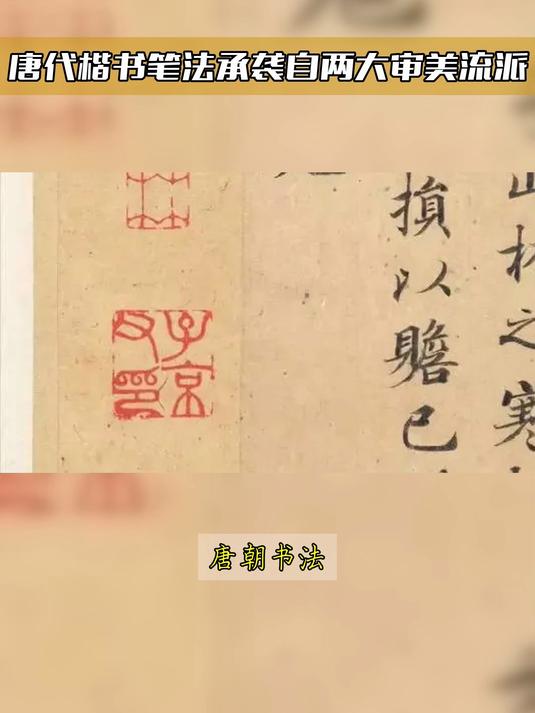 唐代楷书笔法承袭自两大审美流派
之寒
損以贍已
子京父印
唐朝书法